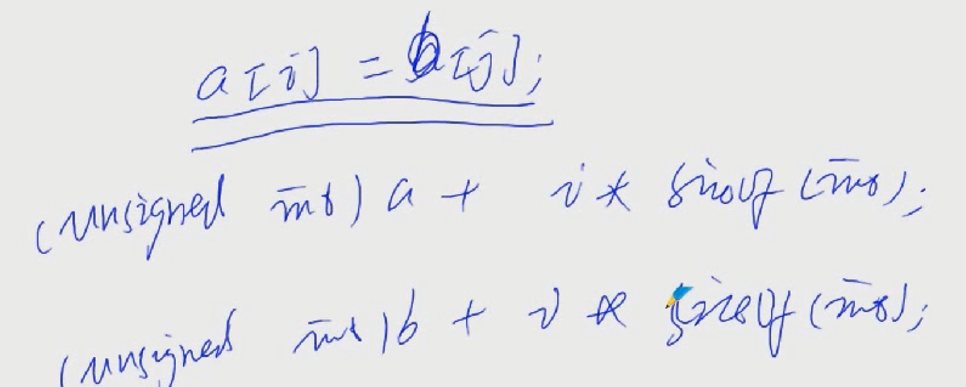 a[i] = b[j];
(unsigned int) a + i * sizeof (int);
(unsigned int) b + i * sizeof (int);